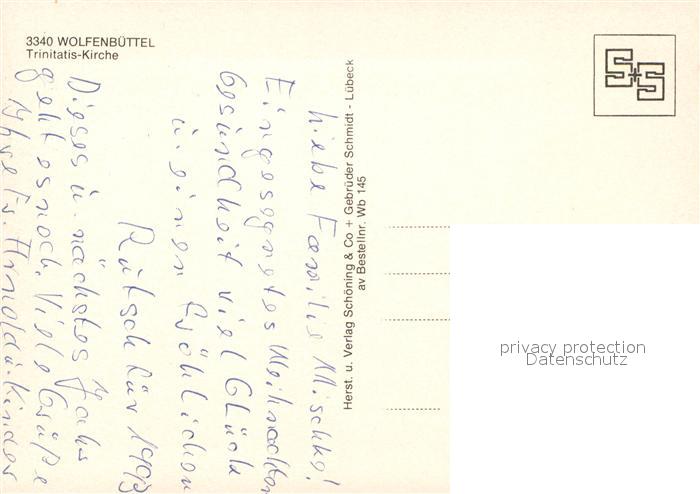 3340 WOLFENBÜTTEL
Trinitatis-Kirche
S+S
Liebe Familie Mischke!
Ein gesegnetes Weihnachten
Gesundheit viel Glück
u. einen fröhlichen
Rutsch für 1993
Dieses u. nächstes Jahr
geht es noch. Viele Grüße
Arnold u. Kinder
Herst. u. Verlag Schöning & Co + Gebrüder Schmidt - Lübeck
av Bestellnr. Wb 145
privacy protection
Datenschutz